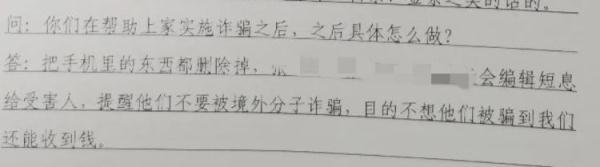 金来之类的话的。
问：你们在帮助上家实施诈骗之后，之后具体怎么做？
答：把手机里的东西都删除掉，张 会编辑短息
给受害人，提醒他们不要被境外分子诈骗，目的不想他们被骗到我们
还能收到钱。